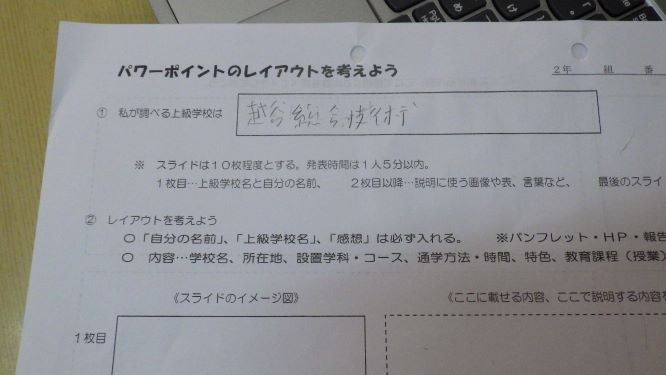 パワーポイントのレイアウトを考えよう
2年 組 番
① 私が調べる上級学校は 越谷総合技術
※ スライドは10枚程度とする。発表時間は1人5分以内。
1枚目…上級学校名と自分の名前、 2枚目以降…説明に使う画像や表、言葉など、 最後のスライ
② レイアウトを考えよう
○「自分の名前」、「上級学校名」、「感想」は必ず入れる。 ※パンフレット・HP・報告
○ 内容…学校名、所在地、設置学科・コース、通学方法・時間、特色、教育課程（授業）
《スライドのイメージ図》 《ここに載せる内容、ここで説明する内容を
1枚目